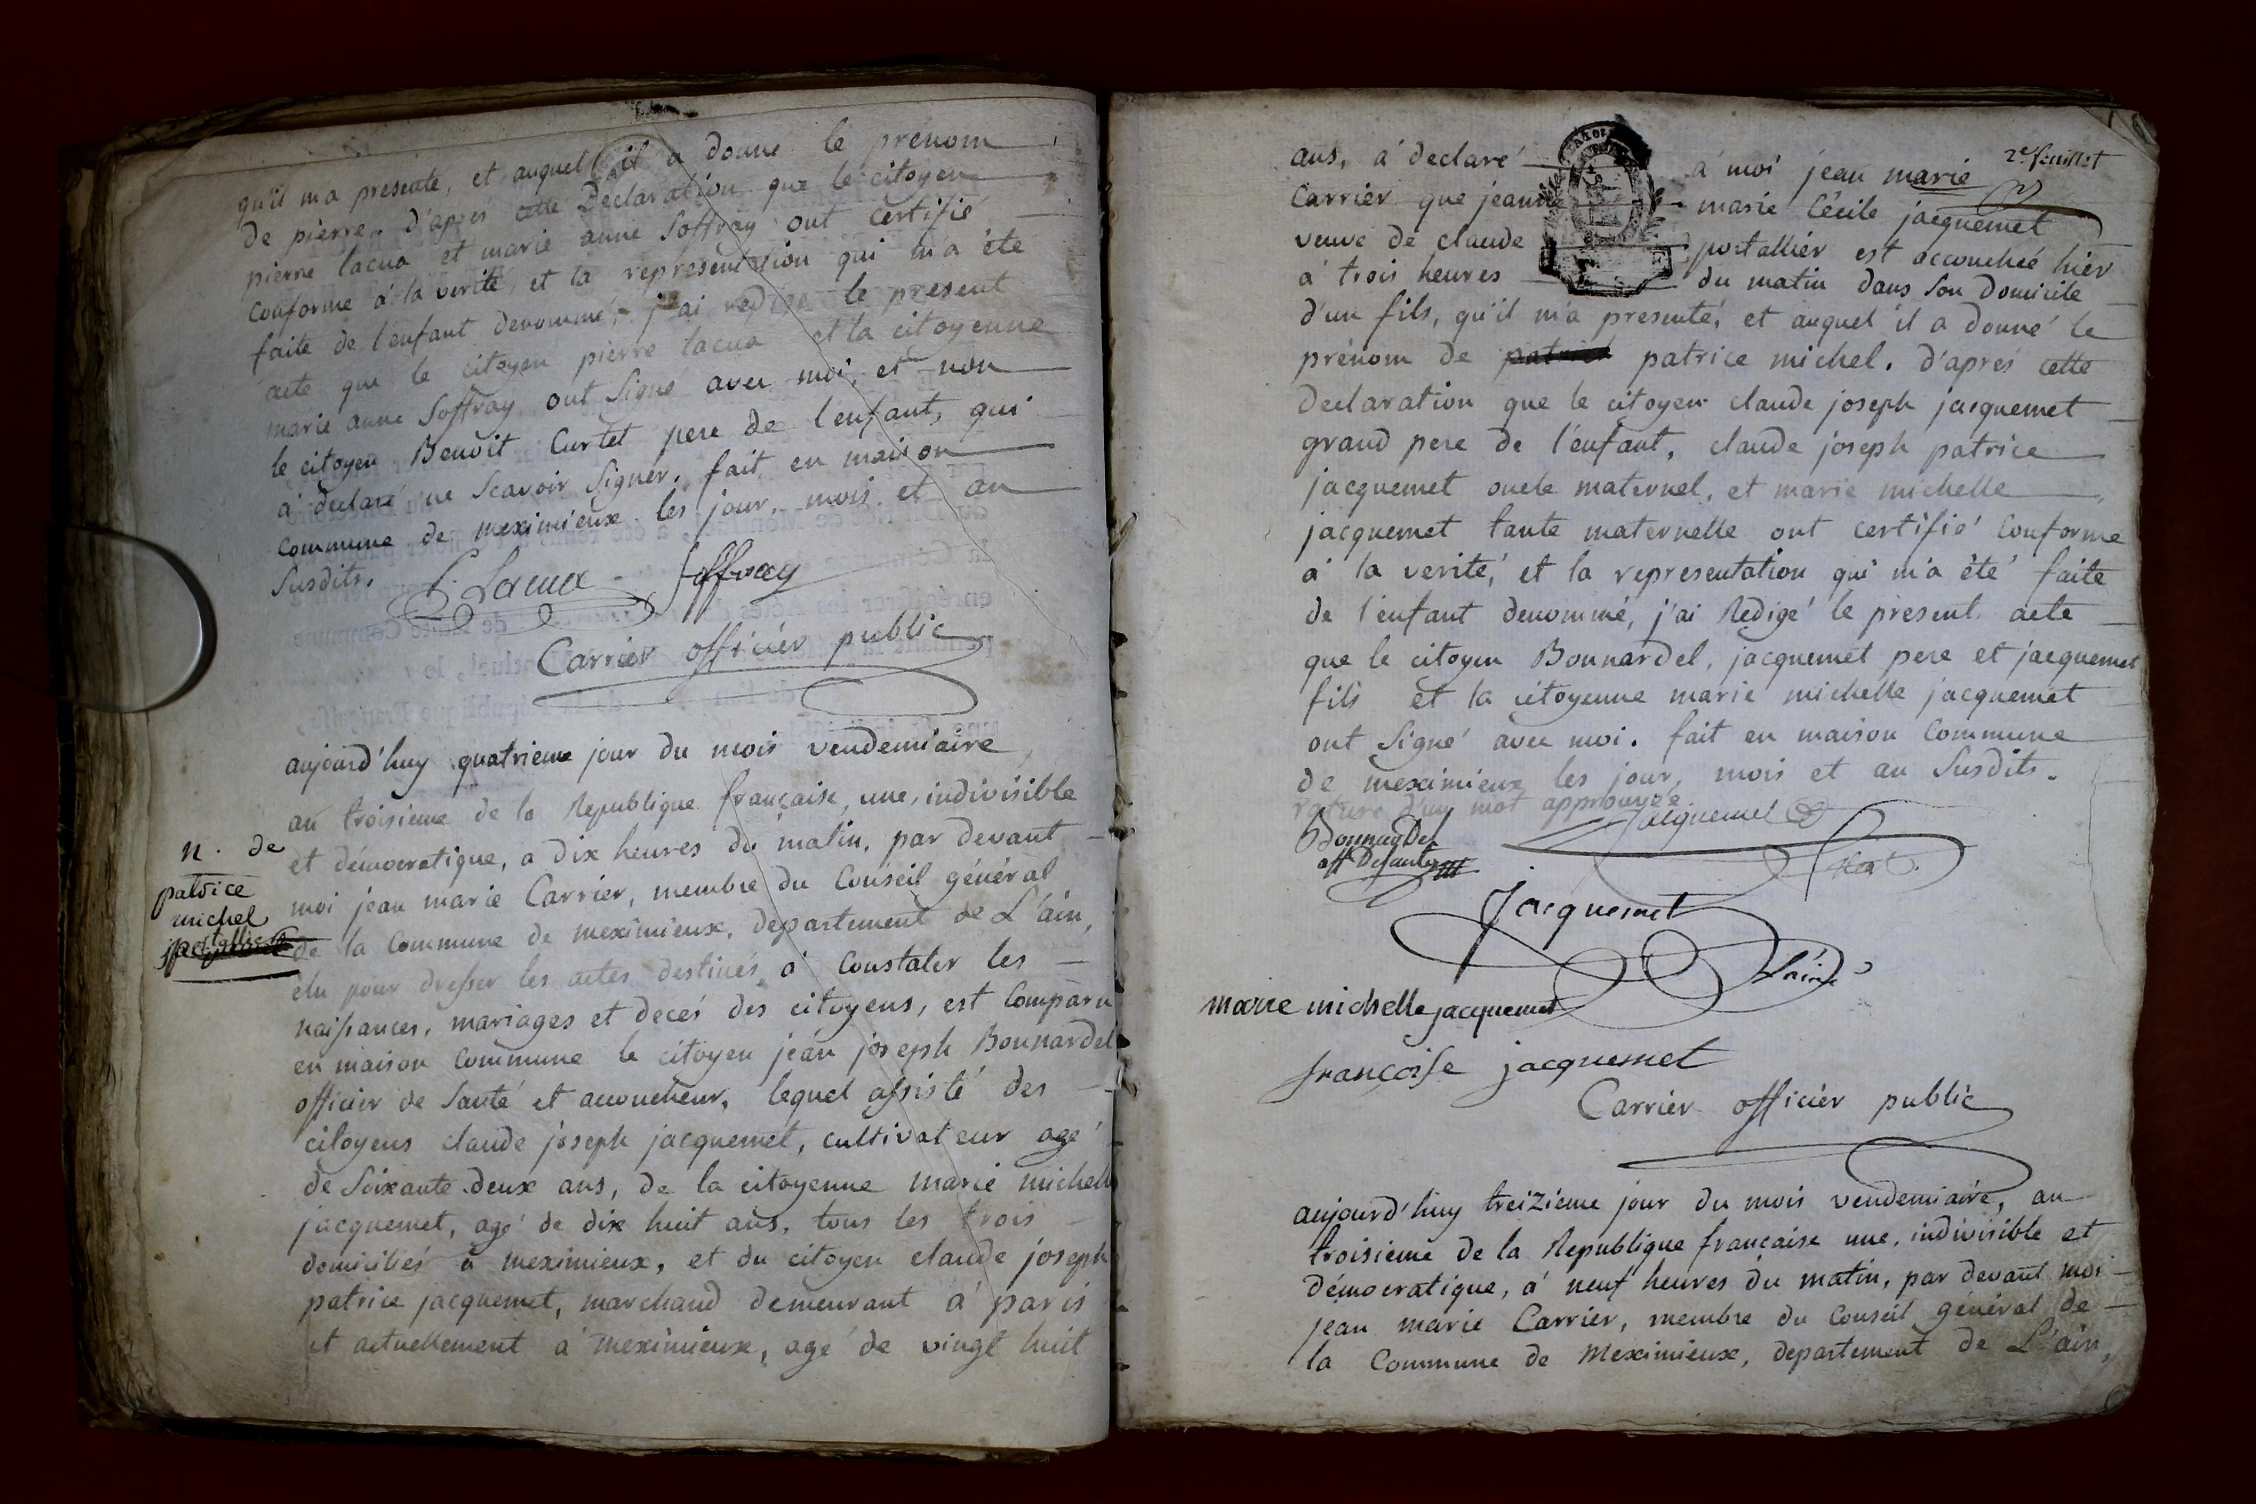 qu'il m'a presenté, et auquel il a donné le prénom
de pierre. d'aprés cette Declaration que le citoyen
pierre lacua et marie anne Soffray ont certifié
conforme á la verité, et la representation qui m'a été
faite de l'enfant denommé, j'ai redigé le present
acte que le citoyen pierre lacua et la citoyenne
marie anne Soffray ont signé avec moi, et non
le citoyen Benoit Curtet pere de l'enfant, qui
á declaré ne scavoir signer. fait en maison
commune de meximieux les jour, mois et an
susdits.
Lacua Soffray
Carrier officier public
aujourd'huy quatrieme jour du mois vendemiaire
an troisieme de la Republique française, une, indivisible
et démocratique, a dix heures du matin, par devant
moi jean marie Carrier, membre du Conseil général
de la Commune de meximieux, departement de L'ain,
elu pour dresser les actes destinés á constater les
naissances, mariages et decés des citoyens, est comparu
en maison commune le citoyen jean joseph Bonnardel
officier de santé et accoucheur, lequel assisté des
citoyens claude joseph jacquemet, cultivateur agé
de soixante deux ans, de la citoyenne marie michelle
jacquemet, agé de dix huit ans, tous les trois
domiciliés á meximieux, et du citoyen claude joseph
patrice jacquemet, marchand demeurant á paris
et actuellement á meximieux, agé de vingt huit
n. de
patrice
michel
2e feuillet
ans, á declaré á moi jean marie
Carrier que jeanne marie Cécile jacquemet
veuve de claude portallier est accouchée hier
á trois heures du matin dans son domicile
d'un fils, qu'il m'a presenté, et auquel il a donné le
prénom de patrice michel. d'aprés cette
declaration que le citoyen claude joseph jacquemet
grand pere de l'enfant, claude joseph patrice
jacquemet oncle maternel, et marie michelle
jacquemet tante maternelle ont certifié conforme
á la verité, et la representation qui m'a été faite
de l'enfant denommé, j'ai Redigé le present acte
que le citoyen Bonnardel, jacquemet pere et jacquemet
fils et la citoyenne marie michelle jacquemet
ont signé avec moi. fait en maison commune
de meximieux les jour, mois et an susdits.
rature d'un mot approuvée
Bonnardel
off De santé
jacquemet
Jacquemet
marie michelle jacquemet
françoise jacquemet
Carrier officier public
aujourd'huy treizieme jour du mois vendemiaire, an
troisieme de la Republique française une, indivisible et
démocratique, á neuf heures du matin, par devant moi
jean marie Carrier, membre du Conseil général de
la Commune de Meximieux, departement de L'ain,